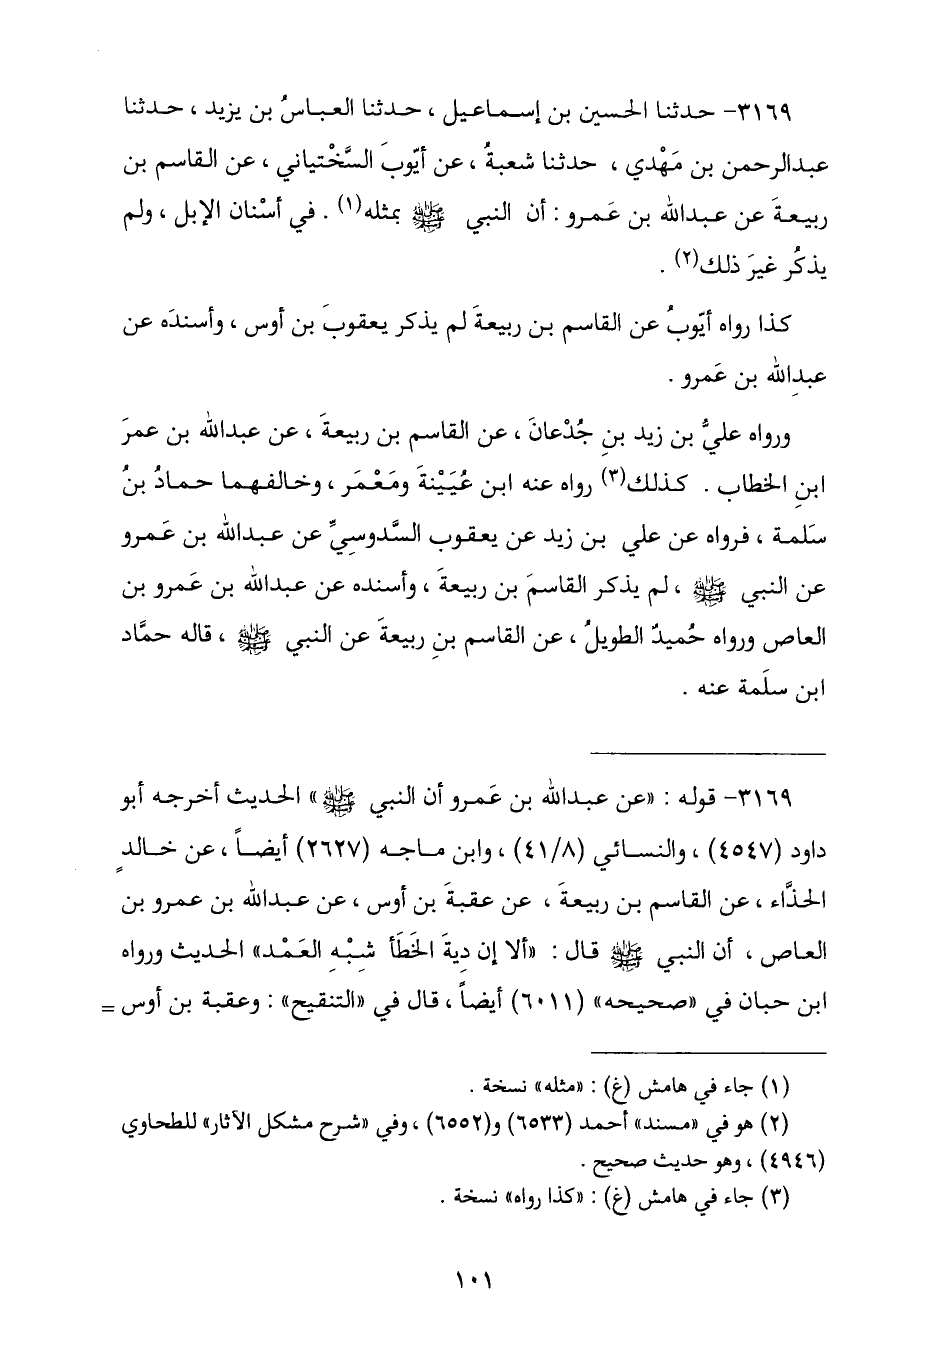 ٣١٦٩- حدثنا الحسين بن إسماعيل ، حدثنا العباسُ بن يزيد ، حدثنا
عبدالرحمن بن مَهْدي ، حدثنا شعبةُ ، عن أيّوبَ السَّخْتياني ، عن القاسم بن
ربيعةَ عن عبدالله بن عَمرو : أن النبي ﷺ بمثله(١) . في أسْنان الإبل ، ولم
يذكُر غيرَ ذلك(٢) .
كذا رواه أيّوبُ عن القاسم بن ربيعةَ لم يذكر يعقوبَ بن أوس ، وأسندَه عن
عبدِالله بن عَمرو .
ورواه عليُّ بن زيد بنِ جُدْعانَ ، عن القاسم بن ربيعةَ ، عن عبدالله بن عمرَ
ابنِ الخطاب . كذلك(٣) رواه عنه ابن عُيَيْنةَ ومَعْمَر ، وخالفهما حمادُ بنُ
سَلمة ، فرواه عن علي بن زيد عن يعقوب السَّدوسيِّ عن عبدالله بن عَمرو
عن النبي ﷺ ، لم يذكر القاسمَ بن ربيعةَ ، وأسنده عن عبدالله بن عَمرو بن
العاص ورواه حُميدٌ الطويلُ ، عن القاسم بنِ ربيعةَ عن النبي ﷺ ، قاله حمَّاد
ابن سلَمة عنه .
٣١٦٩- قوله : «عن عبدالله بن عَمرو أن النبي ﷺ» الحديث أخرجه أبو
داود (٤٥٤٧) ، والنسائي (٤١/٨) ، وابن ماجه (٢٦٢٧) أيضاً ، عن خالدٍ
الحذَّاء ، عن القاسم بن ربيعةَ ، عن عقبةَ بن أوس ، عن عبدالله بن عمرو بن
العاص ، أن النبي ﷺ قال : «ألا إن ديةَ الخَطَأ شِبْهِ العَمْد» الحديث ورواه
ابن حبان في «صحيحه» (٦٠١١) أيضاً ، قال في «التنقيح» : وعقبة بن أوس =
(١) جاء في هامش (غ) : «مثله» نسخة .
(٢) هو في «مسند» أحمد (٦٥٣٣) و(٦٥٥٢) ، وفي «شرح مشكل الآثار» للطحاوي
(٤٩٤٦) ، وهو حديث صحيح .
(٣) جاء في هامش (غ) : «كذا رواه» نسخة .
١٠١